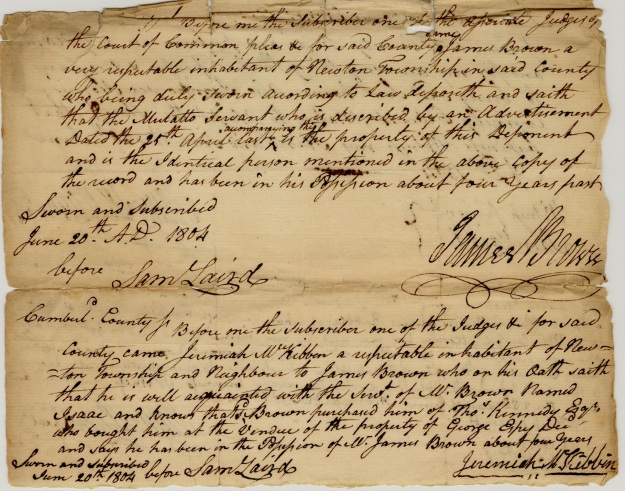 Before me the Subscriber one of the associate Judges of
the Court of Common pleas & for said County came James Brown a
very respectable inhabitant of Newton Township in said County
who being duly sworn acording to Law deposeth and saith
that the Mulatto Servant who is discribed by an Advertisement
Dated the 25th April last accompanying this is the property of this Deponent
and is the Identical person mentioned in the above Copy of
the record and has been in his Possession about four Years past
Sworn and Subscribed
June 20th A.D. 1804
before Saml Laird
James Brown
Cumbld County Ss Before me the Subscriber one of the Judges & for said
County came Jeremiah McKibben a repectable inhabitant of New=
=ton Township and Neighbour to James Brown who on his Oath saith
that he is well acquainted with the Servt of Mr Brown Named
Isaac and knows that Brown purchased him of Thos Kennedy Esqr
who bought him at the Vendue of the property of George Decd
and says he has been in the Possession of Mr James Brown about four Years
Sworn and subscribed
June 20th 1804 before Saml Laird
Jeremiah McKibbin